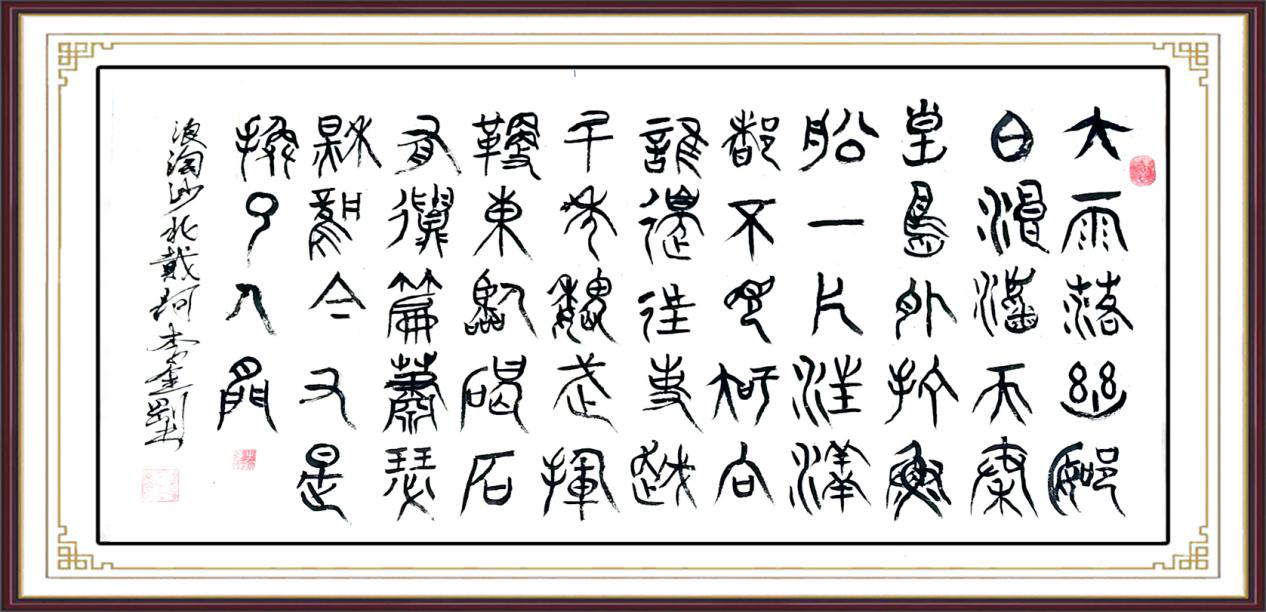 大雨落幽燕
白浪滔天秦
皇島外打魚
船一片汪洋
都不見知向
誰邊往事越
千年魏武揮
鞭東臨碣石
有遺篇蕭瑟
秋風今又是
換了人間
浪淘沙北戴河李金剛书